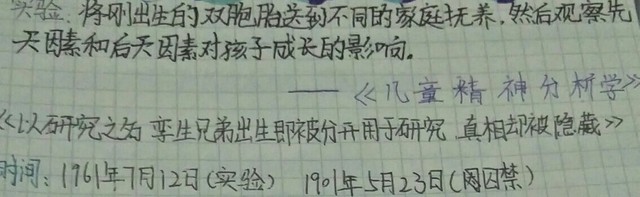 实验: 将刚出生的双胞胎送到不同的家庭抚养,然后观察先
天因素和后天因素对孩子成长的影响。
——《儿童精神分析学》
《以研究之名 孪生兄弟出生即被分开用于研究 真相却被隐藏》
时间: 1961年7月12日(实验) 1901年5月23日(囚禁)